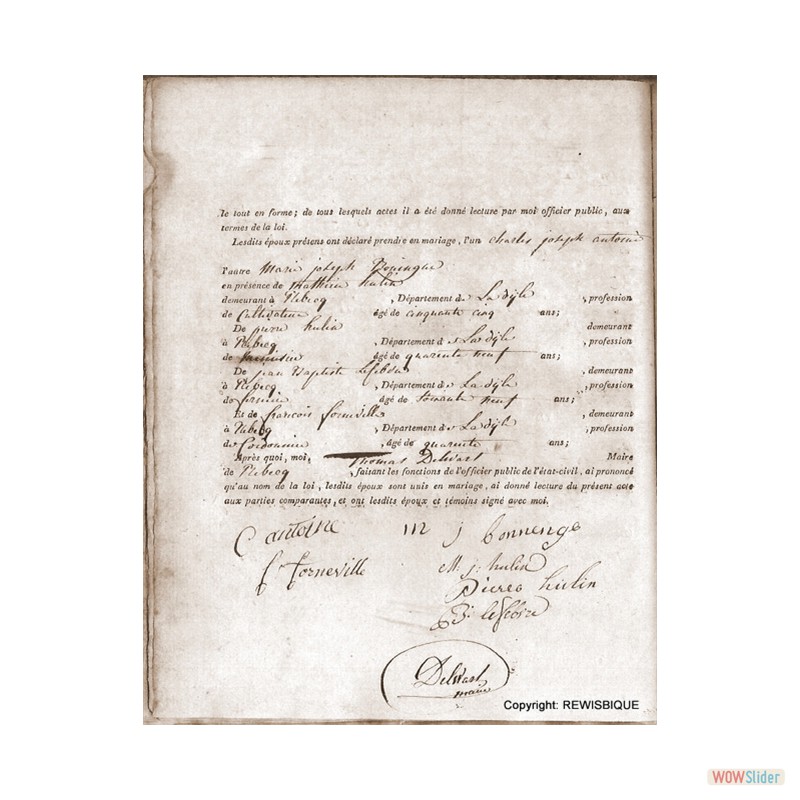 le tout en forme; de tous lesquels actes il a été donné lecture par moi officier public, aux
termes de la loi.
Lesdits époux présens ont déclaré prendre en mariage, l'un charles joseph antoine
l'autre Marie joseph
en présence de Mathieu hulin
demeurant à Rebecq , Département de La dijle , profession
de Cultivateur âgé de cinquante cinq ans;
De pierre hulin demeurant
à Rebecq , Département de La dijle , profession
de âgé de quarente neuf ans;
De jean Baptiste Lefebvre , demeurant
à Rebecq , Département de La dijle , profession
de âgé de soixante neuf ans;
Et de françois forneville , demeurant
à Rebecq , Département de La dijle , profession
de Cordonnier , âgé de quarente ans;
Après quoi, moi, Thomas Delwart Maire
de Rebecq , faisant les fonctions de l'officier public de l'état-civil, ai prononcé
qu'au nom de la loi, lesdits époux sont unis en mariage, ai donné lecture du présent acte
aux parties comparantes, et ont lesdits époux et témoins signé avec moi.
C antoine m j bonnenge
f forneville M: j: hulin
Pierre hulin
lefebvre
Delwart
maire
Copyright: REWISBIQUE
WOWSlider